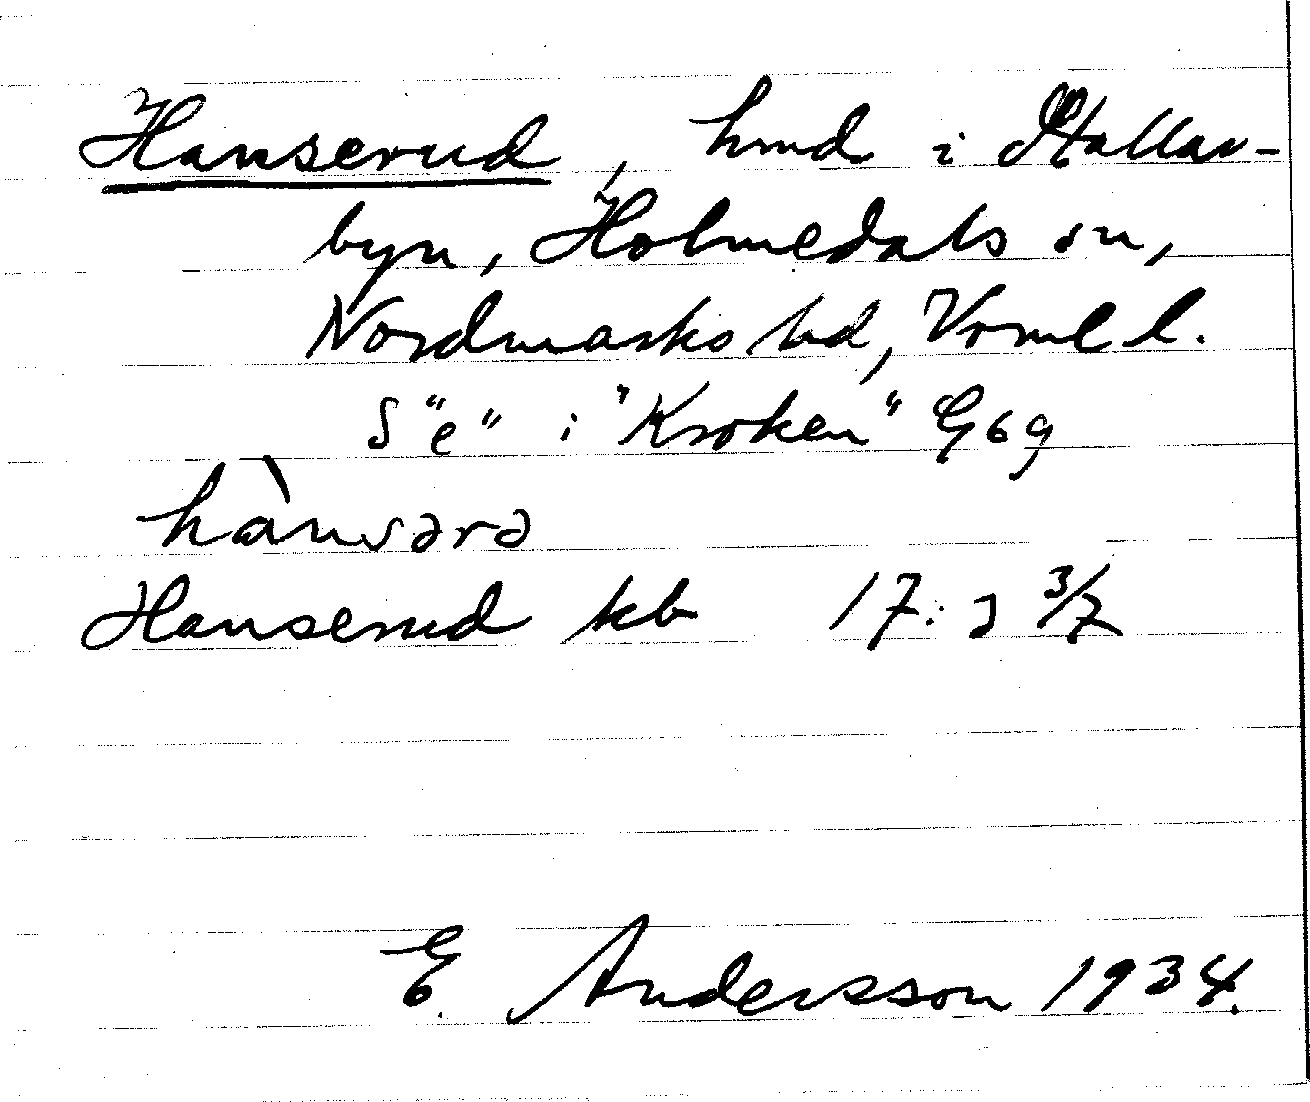 Hanserud, hmd i Stallar-
byn, Holmedals sn,
Nordmarks hd, Vrml l.
S "e" i "Kroken" G6g
hànsərə
Hanserud kb 17: J 3/7
E. Andersson 1934.